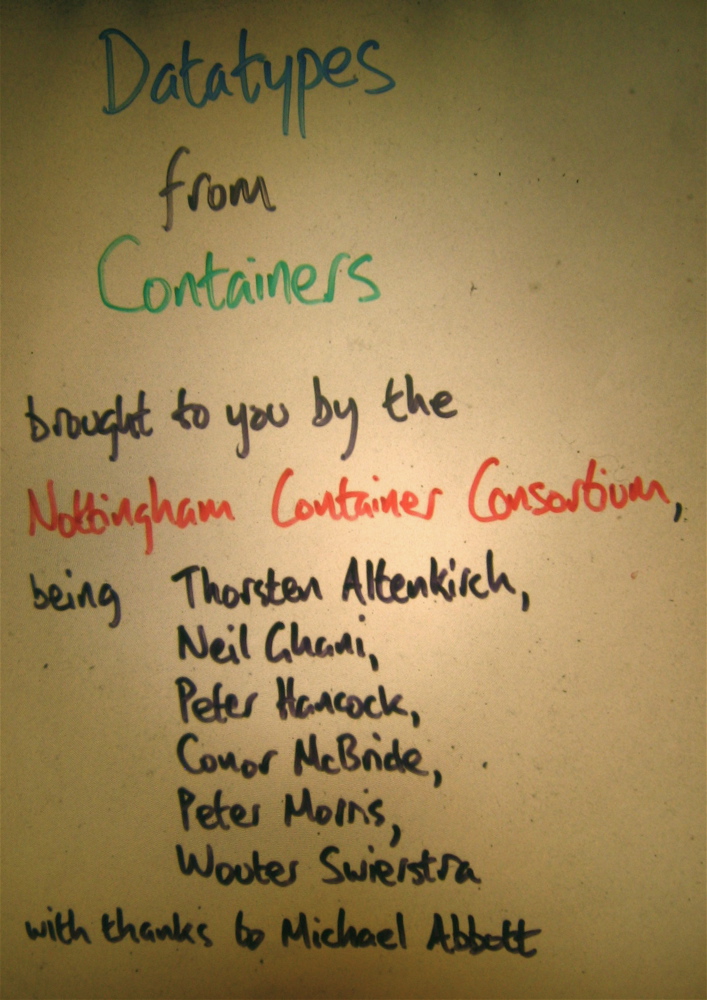 Datatypes
from
Containers
brought to you by the
Nottingham Container Consortium,
being Thorsten Altenkirch,
Neil Ghani,
Peter Hancock,
Conor McBride,
Peter Morris,
Wouter Swierstra
with thanks to Michael Abbott